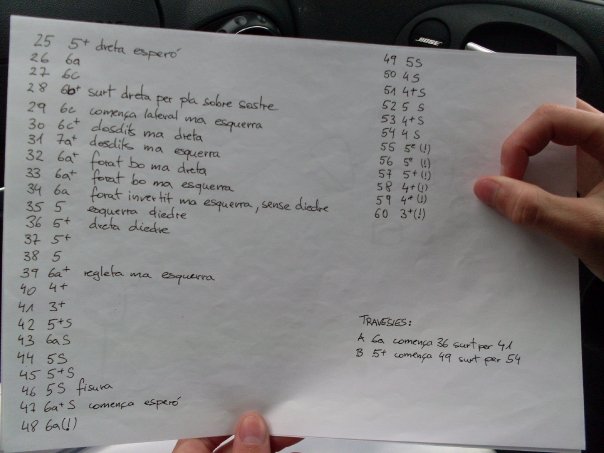 25 5+ dreta esperó
26 6a
27 6c
28 6b+ surt dreta per pla sobre sostre
29 6c comença lateral ma esquerra
30 6c+ dosdits ma dreta
31 7a+ dosdits ma esquerra
32 6a+ forat bo ma dreta
33 6a+ forat bo ma esquerra
34 6a forat invertit ma esquerra, sense diedre
35 5 esquerra diedre
36 5+ dreta diedre
37 5+
38 5
39 6a+ regleta ma esquerra
40 4+
41 3+
42 5+S
43 6aS
44 5S
45 5+S
46 5S fisura
47 6a+S comença esperó
48 6a(!)
49 5S
50 4S
51 4+S
52 5S
53 4+S
54 4S
55 5+(!)
56 5+(!)
57 5+(!)
58 4+(!)
59 4+(!)
60 3+(!)
TRAVESIES:
A 6a comença 36 surt per 41
B 5+ comença 49 surt per 54
BOSE